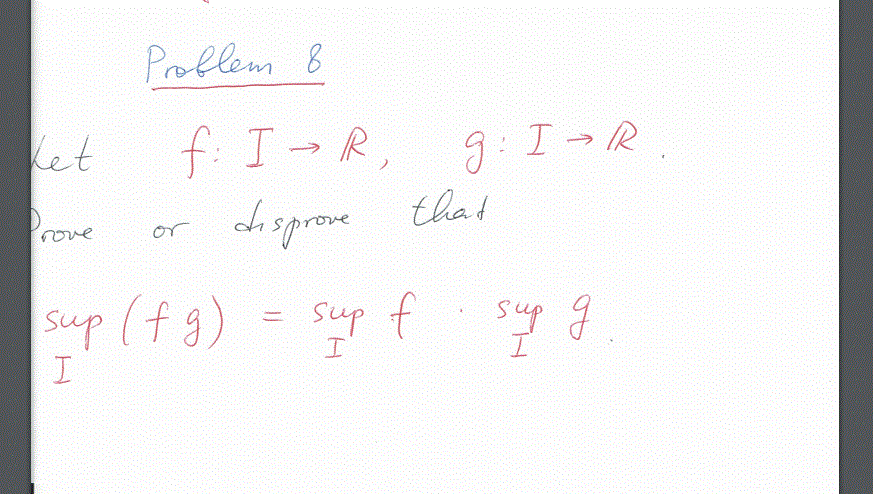 Problem 8
Let f: I → ℝ, g: I → ℝ.
Prove or disprove that
sup (f g) = sup f · sup g.
I I I